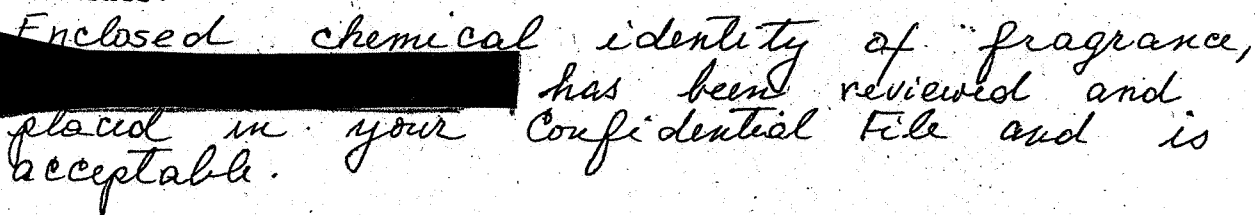 Enclosed chemical identity of fragrance,
has been reviewed and
placed in your Confidential File and is
acceptable.